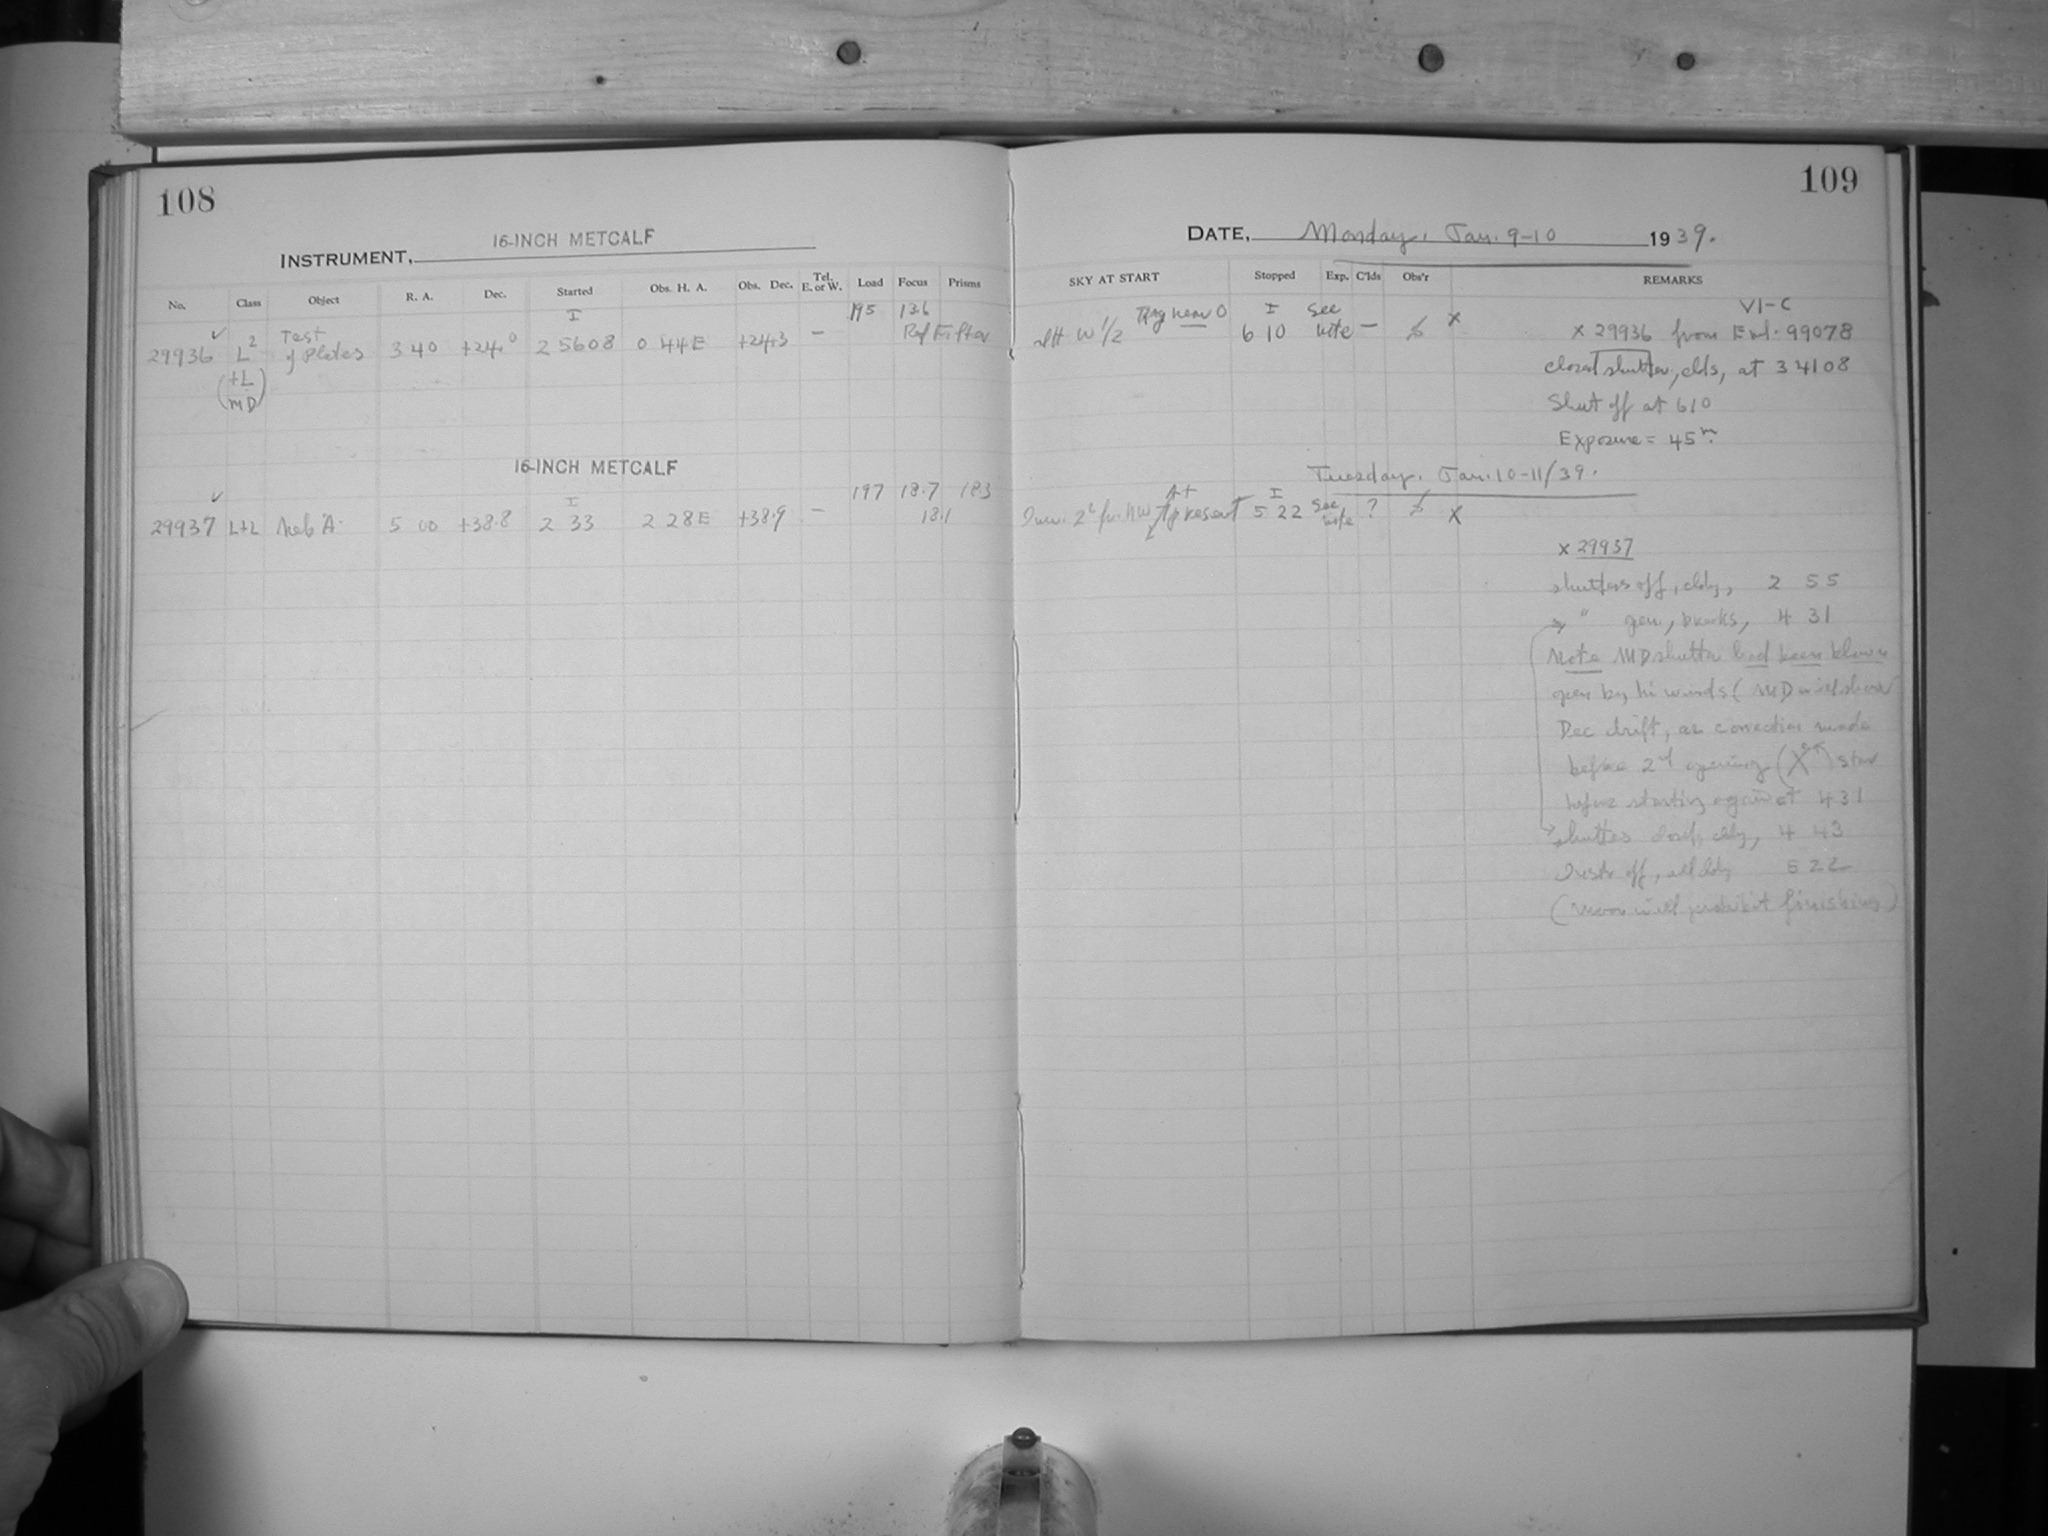 108
109
INSTRUMENT, 16-INCH METCALF
DATE, Monday, Jan. 9-10 1939.
No. Class Object R. A. Dec. Started Obs. H. A. Obs. Dec. Tel. E. or W. Load Focus Prisms
SKY AT START Stopped Exp. C'lds Obs'r REMARKS
29936 ✓ L² Test of Plates 3 40 +24.0 I 2 56 08 0 44E +24.3 — 195 13.6
(+L
MD)
W 1/2 I 6 10 See note — x
VI-C
x 29936 from Exp. 99078
closed shutter, clds, at 3 41 08
Shut off at 6 10
Exposure = 45ᵐ.
16-INCH METCALF
Tuesday. Jan. 10-11/39.
29937 ✓ L+L Neb A. 5 00 +38.8 I 2 33 2 28E +38.9 — 197 18.7 18.3
18.1
present I 5 22 See note ? x
x 29937
shutters off, cldy, 2 55
" breaks, 4 31
Note MD shutter had been blown
open by hi winds (MD will show
Dec drift, as correction made
before 2nd opening star
before starting again at 4 31
shutters cldy, 4 43
off, all cldy 5 22
(Moon will prohibit finishing)